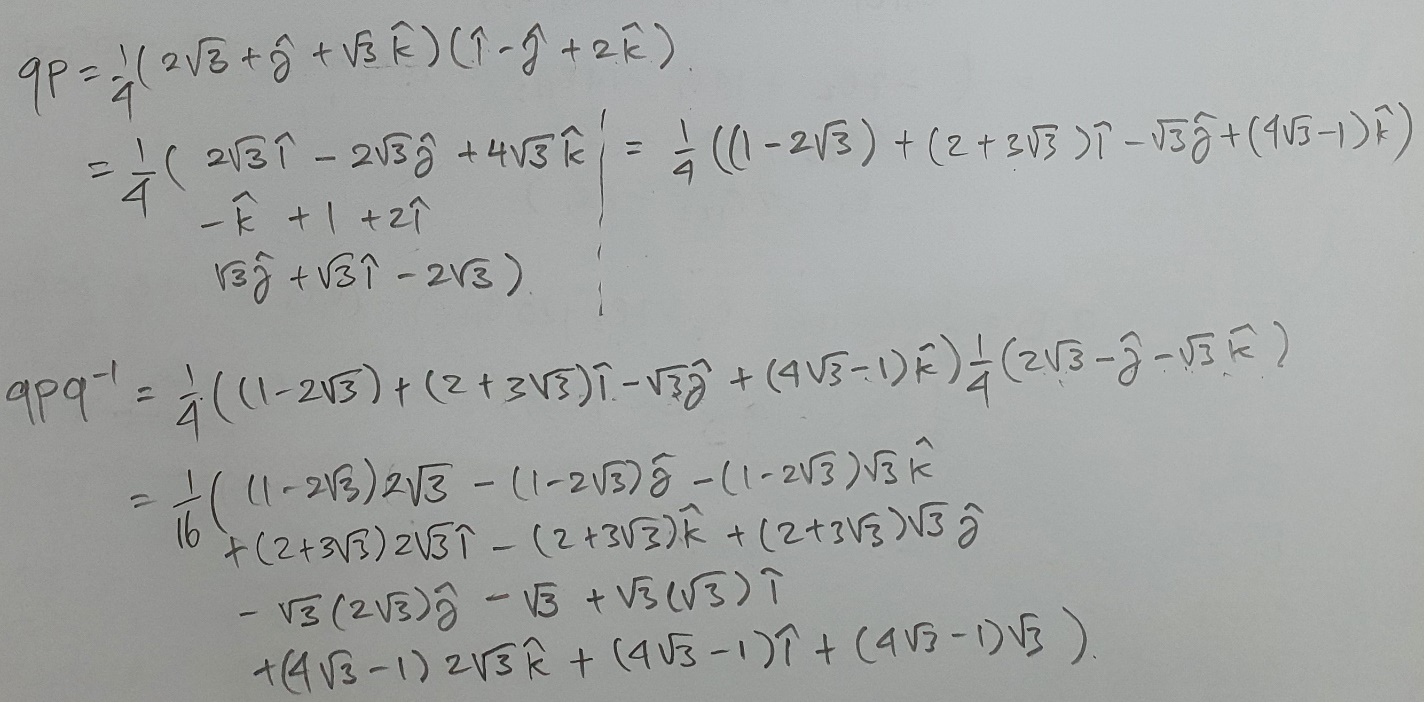 qp = 1/4 (2√3 + ĵ + √3 k̂)(î - ĵ + 2k̂)
= 1/4 ( 2√3 î - 2√3 ĵ + 4√3 k̂
- k̂ + 1 + 2î
√3 ĵ + √3 î - 2√3 )
= 1/4 ((1 - 2√3) + (2 + 3√3) î - √3 ĵ + (4√3 - 1) k̂)
qpq⁻¹ = 1/4 ((1 - 2√3) + (2 + 3√3) î - √3 ĵ + (4√3 - 1) k̂) 1/4 (2√3 - ĵ - √3 k̂)
= 1/16 ( (1 - 2√3) 2√3 - (1 - 2√3) ĵ - (1 - 2√3) √3 k̂
+ (2 + 3√3) 2√3 î - (2 + 3√3) k̂ + (2 + 3√3) √3 ĵ
- √3 (2√3) ĵ - √3 + √3 (√3) î
+ (4√3 - 1) 2√3 k̂ + (4√3 - 1) î + (4√3 - 1) √3 ).